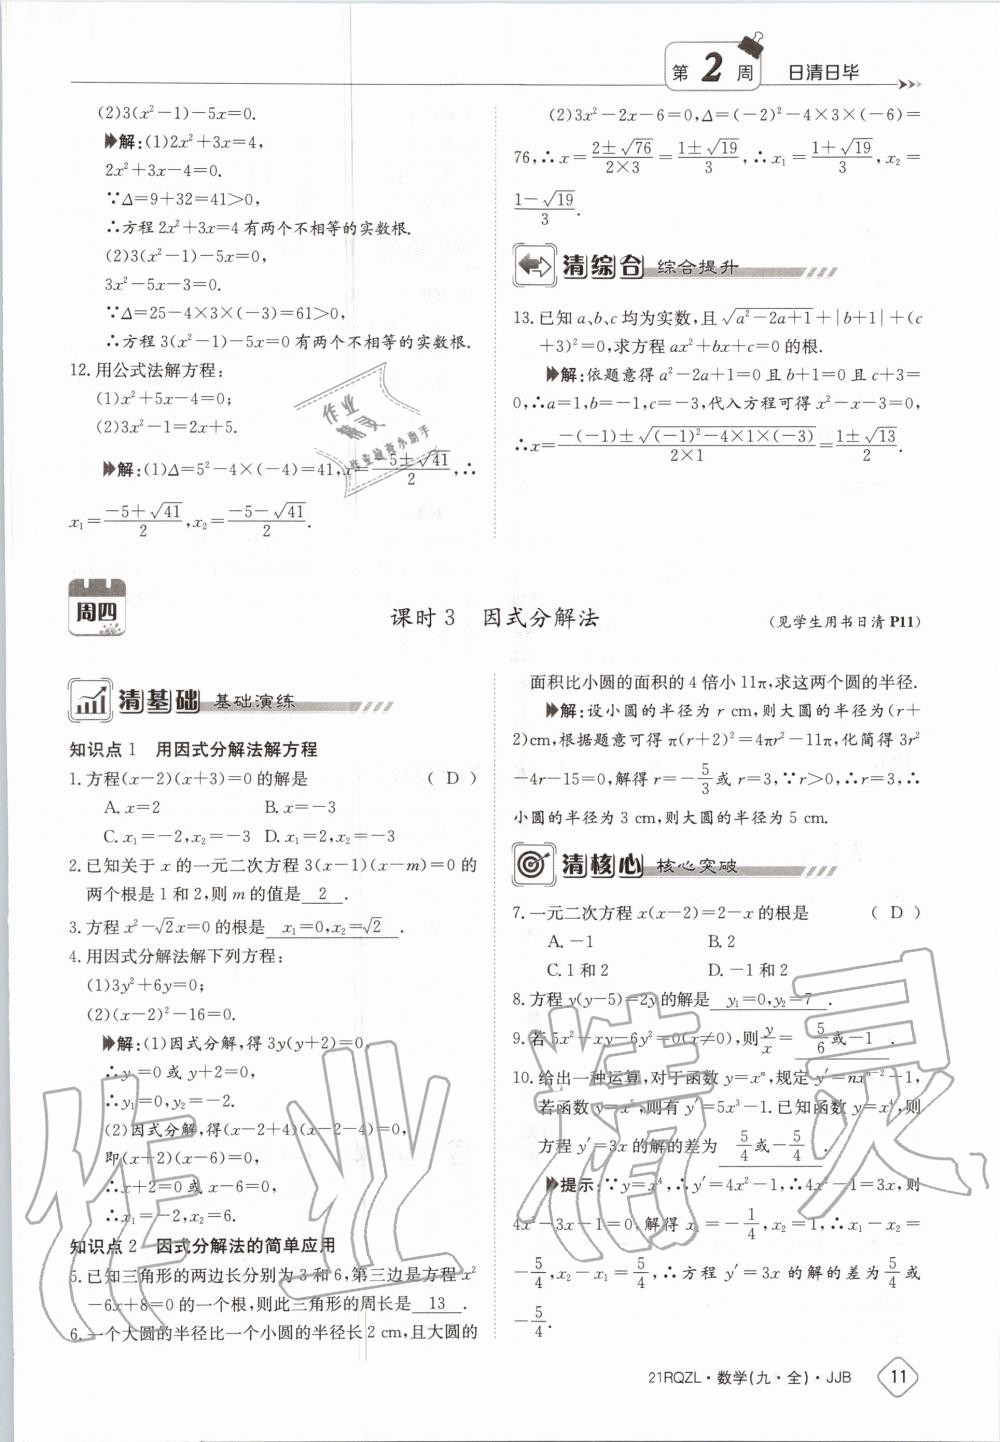 第2周 日清日毕
(2)3(x²-1)-5x=0.
解:(1)2x²+3x=4,
2x²+3x-4=0.
∵Δ=9+32=41>0,
∴方程 2x²+3x=4 有两个不相等的实数根.
(2)3(x²-1)-5x=0,
3x²-5x-3=0.
∵Δ=25-4×3×(-3)=61>0,
∴方程 3(x²-1)-5x=0 有两个不相等的实数根.
12. 用公式法解方程:
(1)x²+5x-4=0;
(2)3x²-1=2x+5.
解:(1)Δ=5²-4×(-4)=41,x=(-5±√41)/2,∴
x₁=(-5+√41)/2,x₂=(-5-√41)/2.
(2)3x²-2x-6=0,Δ=(-2)²-4×3×(-6)=
76,∴x=(2±√76)/(2×3)=(1±√19)/3,∴x₁=(1+√19)/3,x₂=
(1-√19)/3.
清综合 综合提升
13. 已知 a、b、c 均为实数,且√(a²-2a+1)+|b+1|+(c
+3)²=0,求方程 ax²+bx+c=0 的根.
解:依题意得 a²-2a+1=0 且 b+1=0 且 c+3=
0,∴a=1,b=-1,c=-3,代入方程可得 x²-x-3=0,
∴x=(-(-1)±√((-1)²-4×1×(-3)))/(2×1)=(1±√13)/2.
周四
课时3 因式分解法
(见学生用书日清 P11)
清基础 基础演练
知识点1 用因式分解法解方程
1. 方程(x-2)(x+3)=0 的解是 ( D )
A. x=2 B. x=-3
C. x₁=-2,x₂=-3 D. x₁=2,x₂=-3
2. 已知关于 x 的一元二次方程 3(x-1)(x-m)=0 的
两个根是 1 和 2,则 m 的值是 2 .
3. 方程 x²-√2x=0 的根是 x₁=0,x₂=√2 .
4. 用因式分解法解下列方程:
(1)3y²+6y=0;
(2)(x-2)²-16=0.
解:(1)因式分解,得 3y(y+2)=0,
∴y=0 或 y+2=0,
∴y₁=0,y₂=-2.
(2)因式分解,得(x-2+4)(x-2-4)=0,
即(x+2)(x-6)=0,
∴x+2=0 或 x-6=0,
∴x₁=-2,x₂=6.
知识点2 因式分解法的简单应用
5. 已知三角形的两边长分别为 3 和 6,第三边是方程 x²
-6x+8=0 的一个根,则此三角形的周长是 13 .
6. 一个大圆的半径比一个小圆的半径长 2 cm,且大圆的
面积比小圆的面积的 4 倍小 11π,求这两个圆的半径.
解:设小圆的半径为 r cm,则大圆的半径为(r+
2)cm,根据题意可得 π(r+2)²=4πr²-11π,化简得 3r²
-4r-15=0,解得 r=-5/3 或 r=3,∵r>0,∴r=3,∴
小圆的半径为 3 cm,则大圆的半径为 5 cm.
清核心 核心突破
7. 一元二次方程 x(x-2)=2-x 的根是 ( D )
A. -1 B. 2
C. 1 和 2 D. -1 和 2
8. 方程 y(y-5)=2y 的解是 y₁=0,y₂=7 .
9. 若 5x²+xy-6y²=0(x≠0),则 y/x= 5/6或-1 .
10. 给出一种运算,对于函数 y=xⁿ,规定 y′=nxⁿ⁻²-1,
若函数 y=x⁵,则有 y′=5x³-1. 已知函数 y=x⁴,则
方程 y′=3x 的解的差为 5/4或-5/4 .
提示:∵y=x⁴,∴y′=4x²-1,∴4x²-1=3x,则
4x²-3x-1=0. 解得 x₁=-1/4,x₂=1,∴x₁-x₂=
-5/4,x₂-x₁=5/4,∴方程 y′=3x 的解的差为 5/4 或
-5/4.
21RQZL·数学(九·全)·JJB 11
作业精灵
作业检查小助手
作业精灵